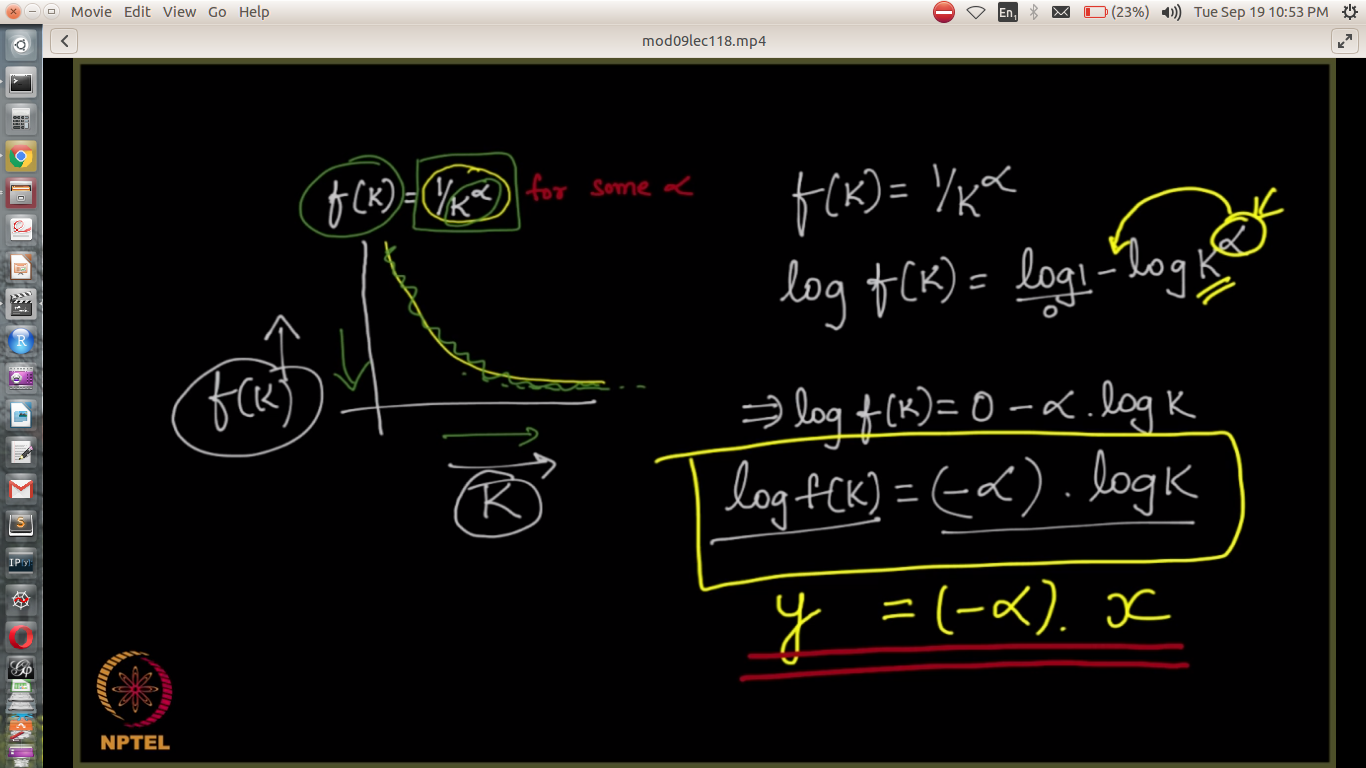 Movie Edit View Go Help
En1
(23%)
Tue Sep 19 10:53 PM
mod09lec118.mp4
f(K) = 1/K^α for some α
f(K)
K
f(K) = 1/K^α
log f(K) = log 1 - log K^α
0
⇒ log f(K) = 0 - α . log K
log f(K) = (-α) . log K
y = (-α) . x
R
S
IP[y]:
NPTEL